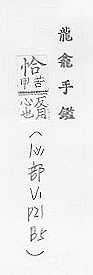 龍龕手鑑
恰苦甲反用心也
(心部V1P21B5)